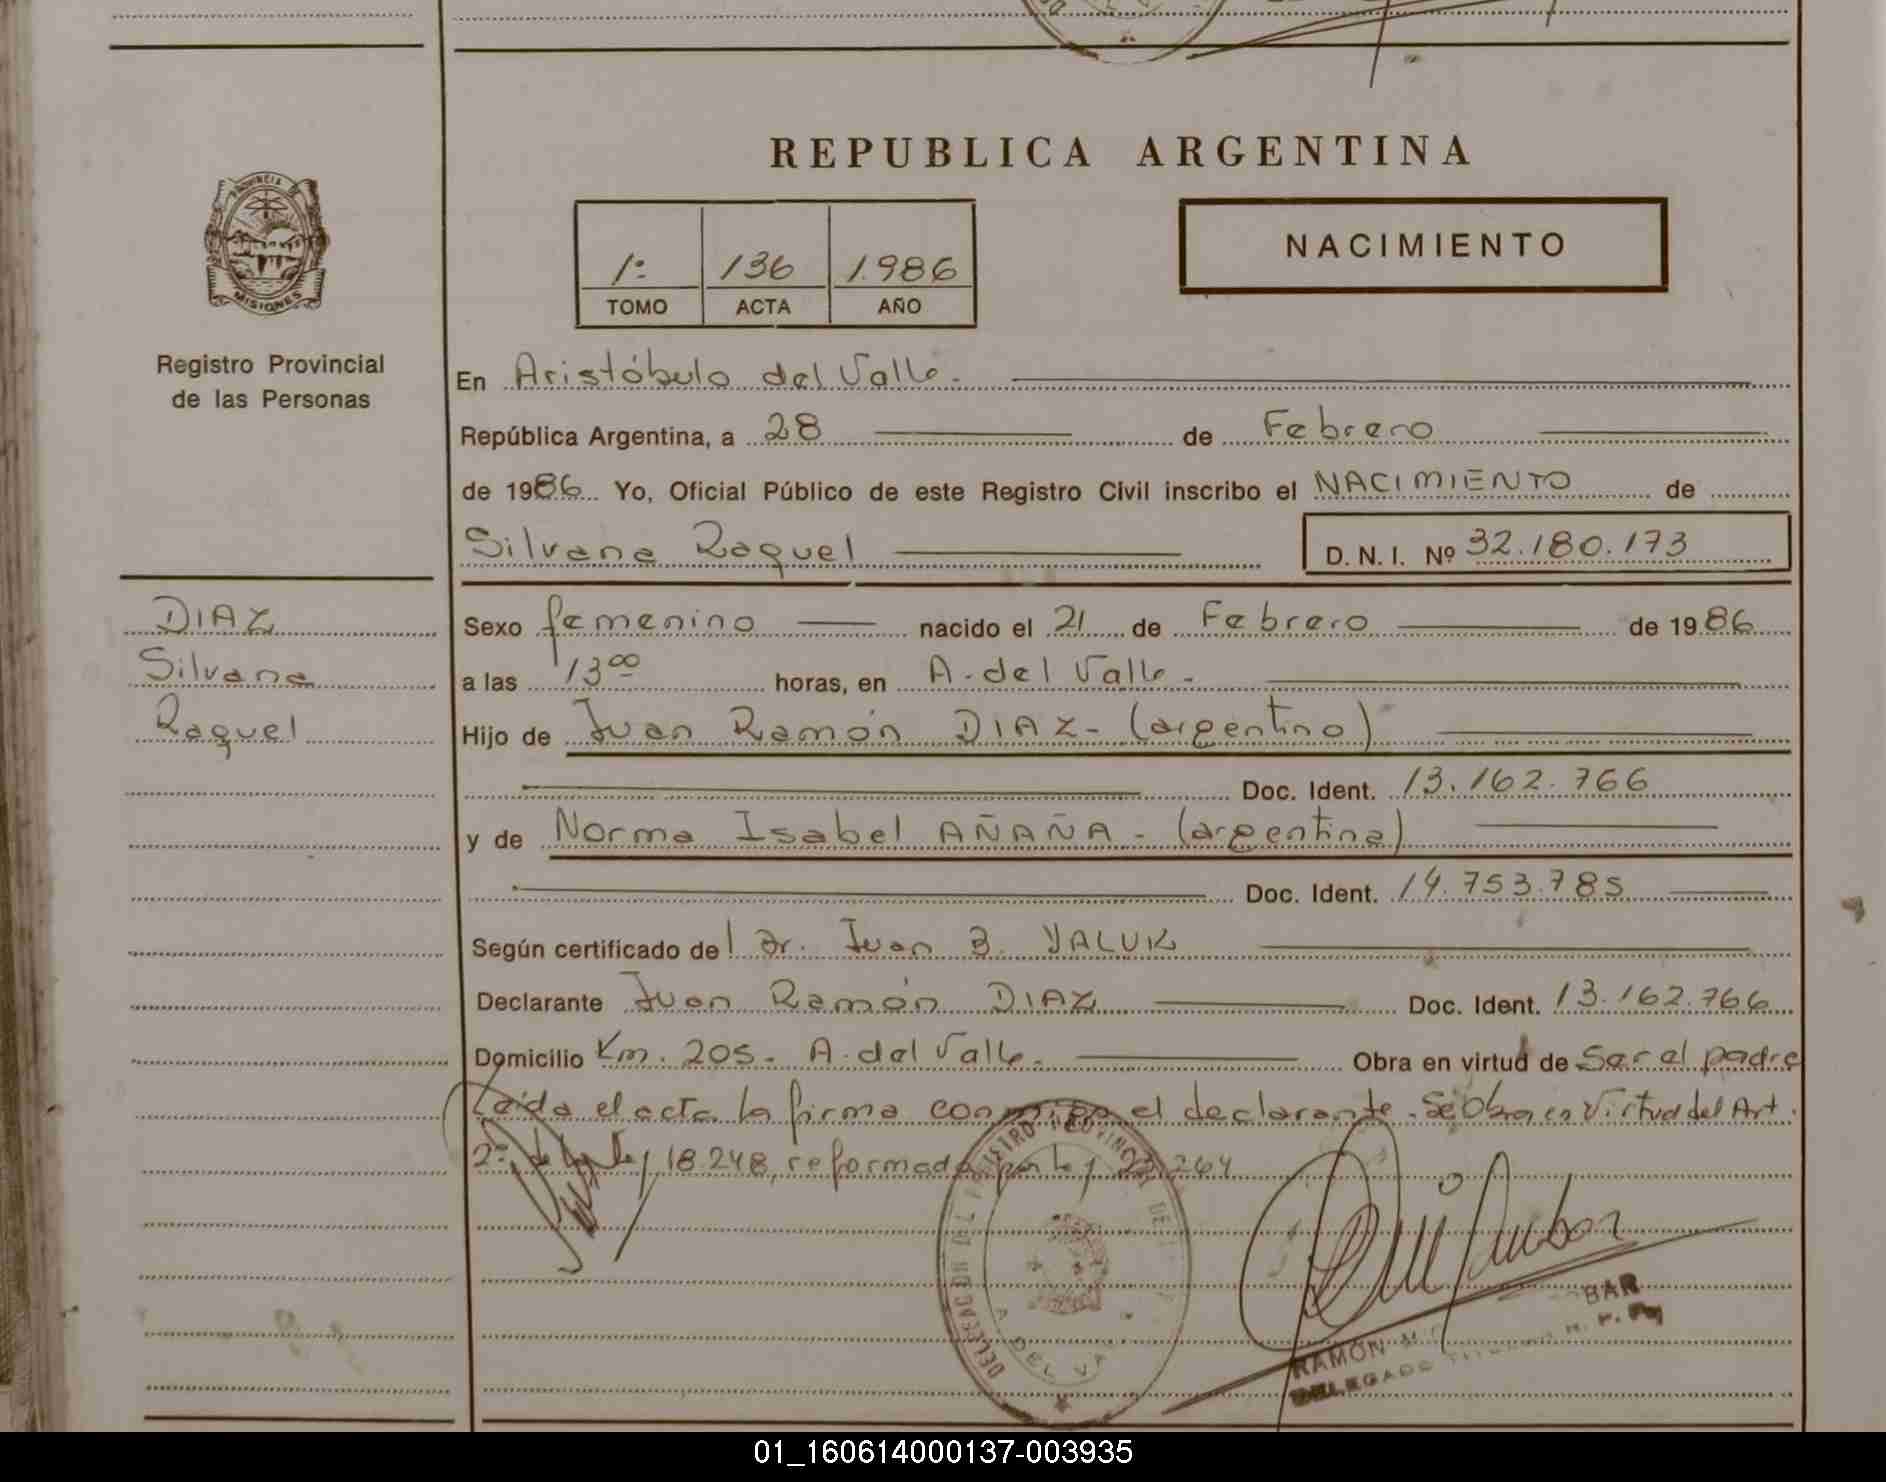 REPUBLICA ARGENTINA
PROVINCIA
MISIONES
Registro Provincial
de las Personas
1º 136 1.986
TOMO ACTA AÑO
NACIMIENTO
En Aristóbulo del Valle.
República Argentina, a 28 de Febrero
de 1986 Yo, Oficial Público de este Registro Civil inscribo el NACIMIENTO de
Silvana Raquel D. N. I. Nº 32.180.173
DIAZ
Silvana
Raquel
Sexo femenino nacido el 21 de Febrero de 1986
a las 13 00 horas, en A. del Valle.
Hijo de Juan Ramón DIAZ - (argentino)
Doc. Ident. 13.162.766
y de Norma Isabel AÑAÑA - (argentina)
Doc. Ident. 14.753.785
Según certificado del Dr. Juan B. YALUK
Declarante Juan Ramón DIAZ Doc. Ident. 13.162.766
Domicilio Km. 205. A. del Valle. Obra en virtud de Ser el padre
Leida el acta la firma conmigo el declarante. Se Obra en Virtud del Art.
2º de la Ley 18.248, reformada por Ley 23.264
REGISTRO PROVINCIAL DE
DELEGACION
A. DEL VA
RAMÓN BAR
DELEGADO TITULAR
01_160614000137-003935